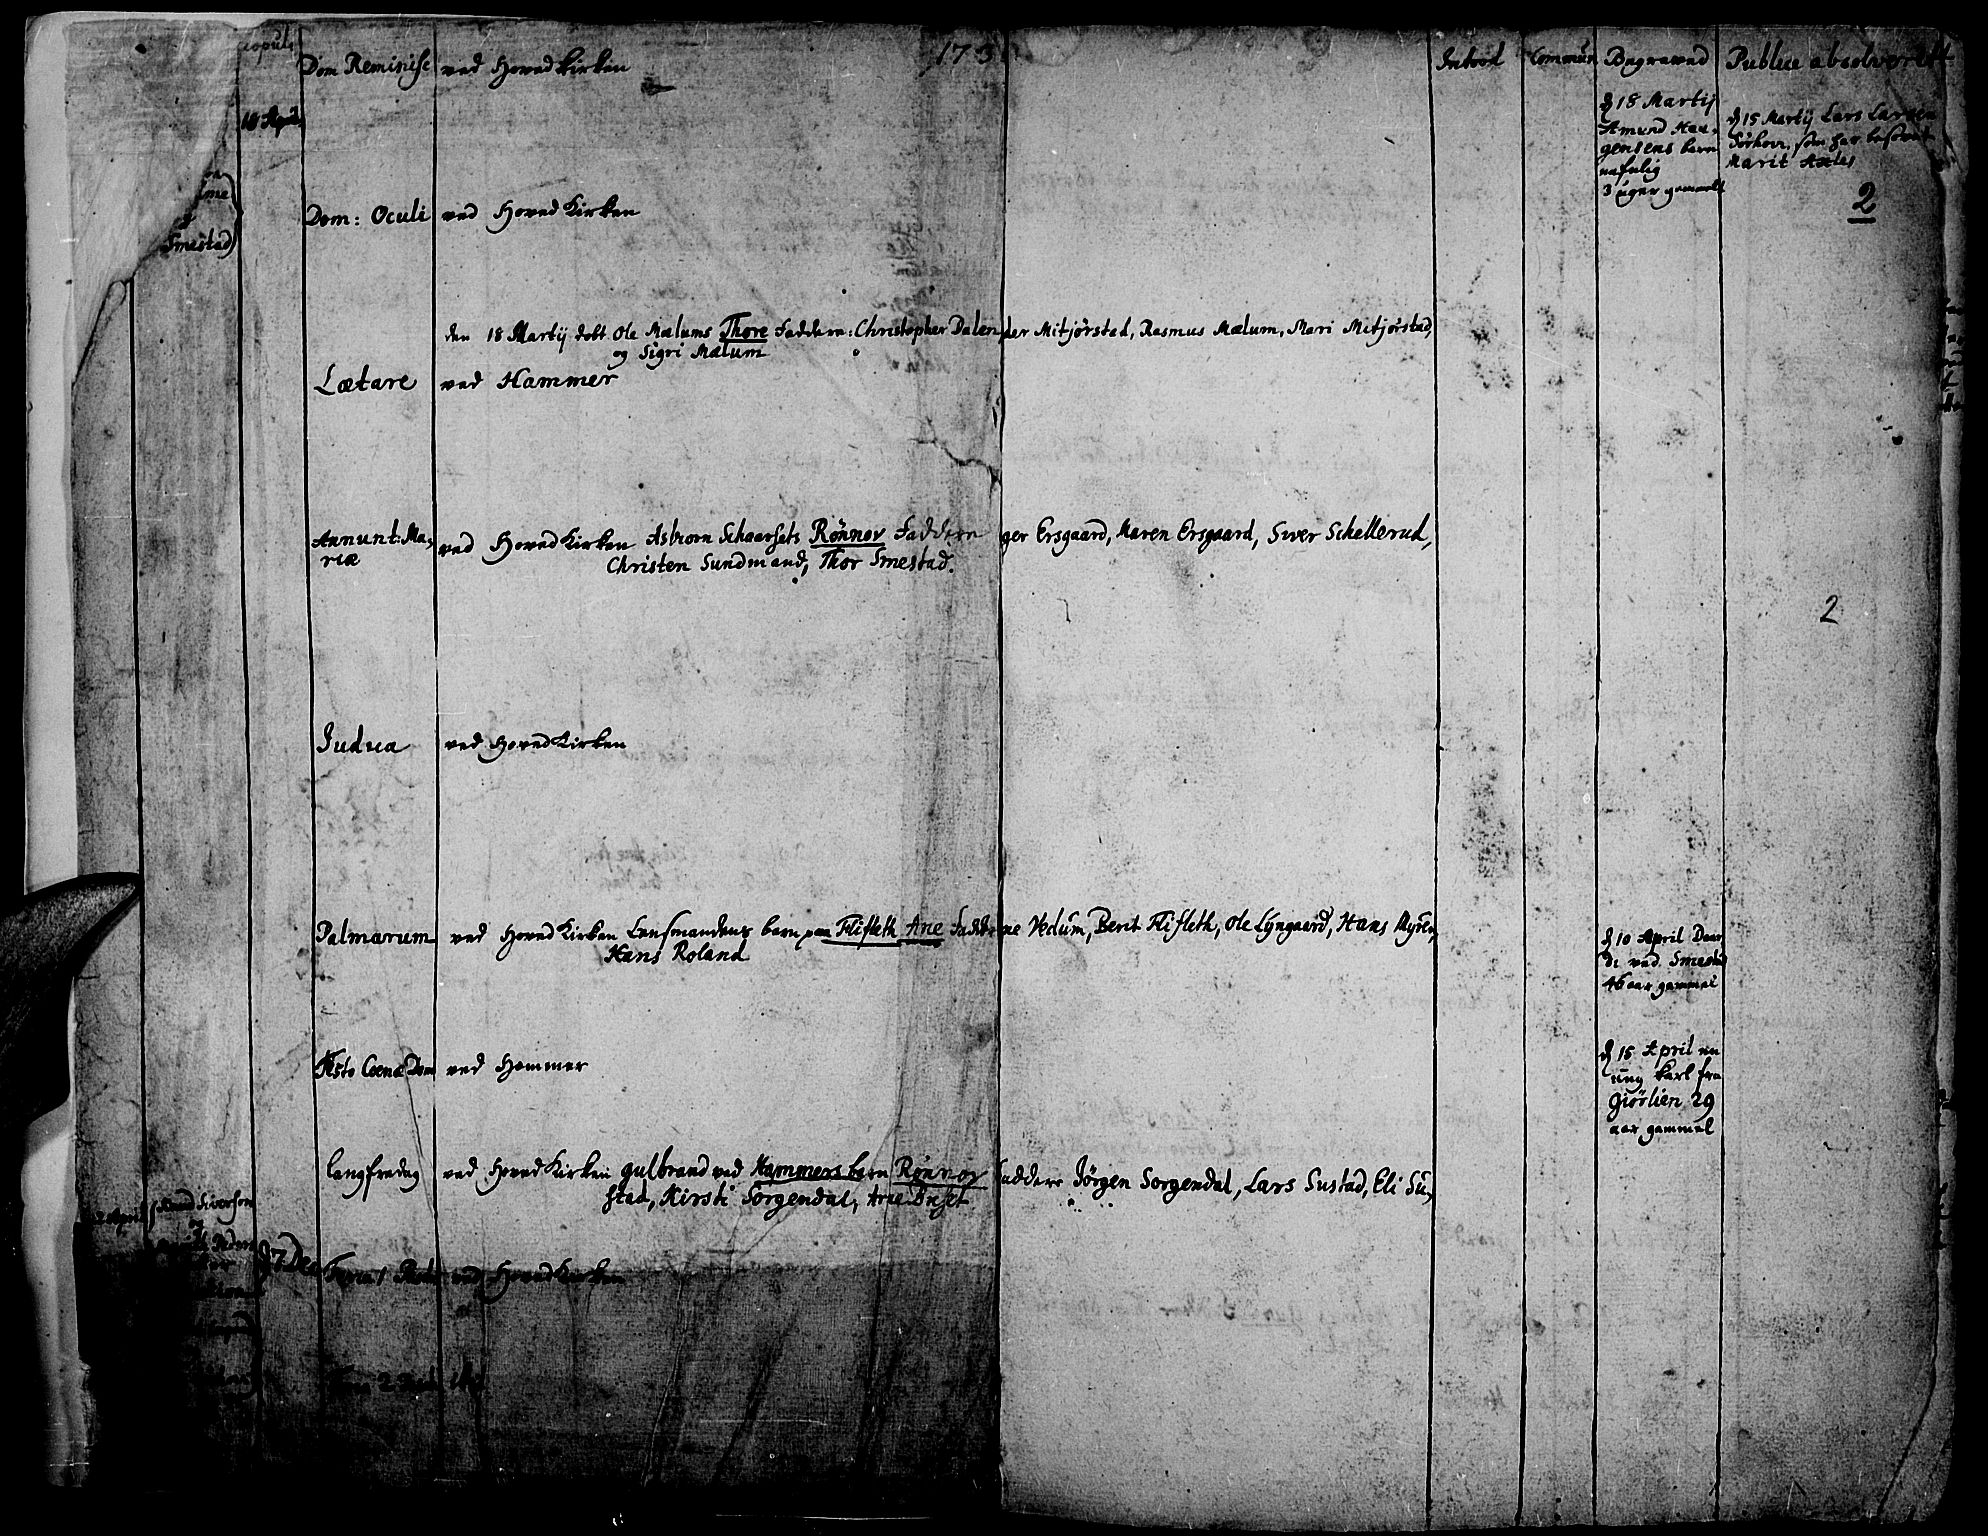 Copul:
Dom Reminisc ved Hoved Kirken 173
Introd Commun Begraved Publice absolverit
18 April
d 18 Martij
Amund Hau,
gensens barn
3 uger gammelt
d 15 Martij Lars Larsen
Marit
2
Smestad
Dom: Oculi ved Hoved Kirken
den 18 Martij døbt Ole Mælums Thore Faddere: Christopher Dalen, der Mitjørstad, Rasmus Mælum, Mari Mitjørstad,
og Sigri Mælum
Lætare ved Hammer
Annunt: Ma, ved Hoved Kirken Asbiorn Schaarsets Rønnov Faddere ger Ersgaard, Maren Ersgaard, Siver Schellerud,
riæ Christen Sundmand, Thor Smestad.
2
Judica ved Hoved Kirken
Palmarum ved Hoved Kirken Lensmandens barn paa Flifleth Ane Fadd ne Vedum, Berit Flifleth, Ole Lyngaard, Hans Myren,
Hans Roland
d 10 April
ved Smestad
46 aar gammel
Festo Coenæ Dom ved Hammer
d 15 April en
ung karl fra
Giørlien 29
aar gammel
Langfredag ved Hoved Kirken gulbrand ved Hammers barn Rønnov Faddere Jørgen Sorgendal, Lars Sustad, Eli Su,
stad, Kirsti Sorgendal, Arne
April Siverson
og
Feria 1 ved Hoved Kirken
2